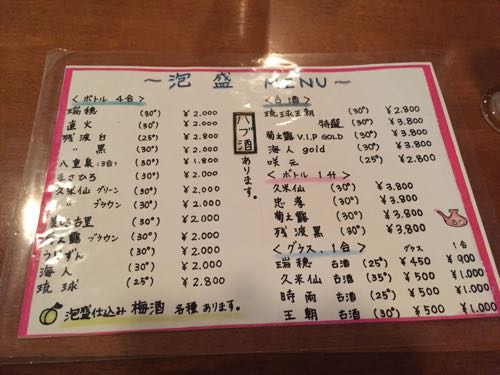 ～泡盛 MENU～
＜ボトル 4合＞
瑞穂 (30°) ¥2.000
直火 (30°) ¥2.000
残波 白 (25°) ¥2.000
〃 黒 (30°) ¥2.000
八重泉(3合) (30°) ¥1.800
まさひろ (30°) ¥2.000
久米仙 グリーン (30°) ¥2.000
〃 ブラウン (30°) ¥2.000
美しき古里 (30°) ¥2.000
菊之露 ブラウン (30°) ¥2.000
うりずん (30°) ¥2.000
海人 (30°) ¥2.000
琉球 (25°) ¥2.800
泡盛仕込み 梅酒 各種 あります。
ハブ酒
あります。
＜古酒＞
琉球王朝 (30°) ¥2.800
特醸 (30°) ¥3.800
菊之露 V.I.P GOLD (30°) ¥2.800
海人 gold (30°) ¥2.800
咲元 (25°) ¥2.800
＜ボトル 1升＞
久米仙 (30°) ¥3.800
忠孝 (30°) ¥3.800
菊之露 (30°) ¥3.800
残波 黒 (30°) ¥3.800
＜グラス、1合＞ グラス 1合
瑞穂 古酒 (25°) ¥450 ¥900
久米仙 古酒 (35°) ¥500 ¥1.000
時雨 古酒 (25°) ¥500 ¥1.000
王朝 古酒 (30°) ¥500 ¥1.000